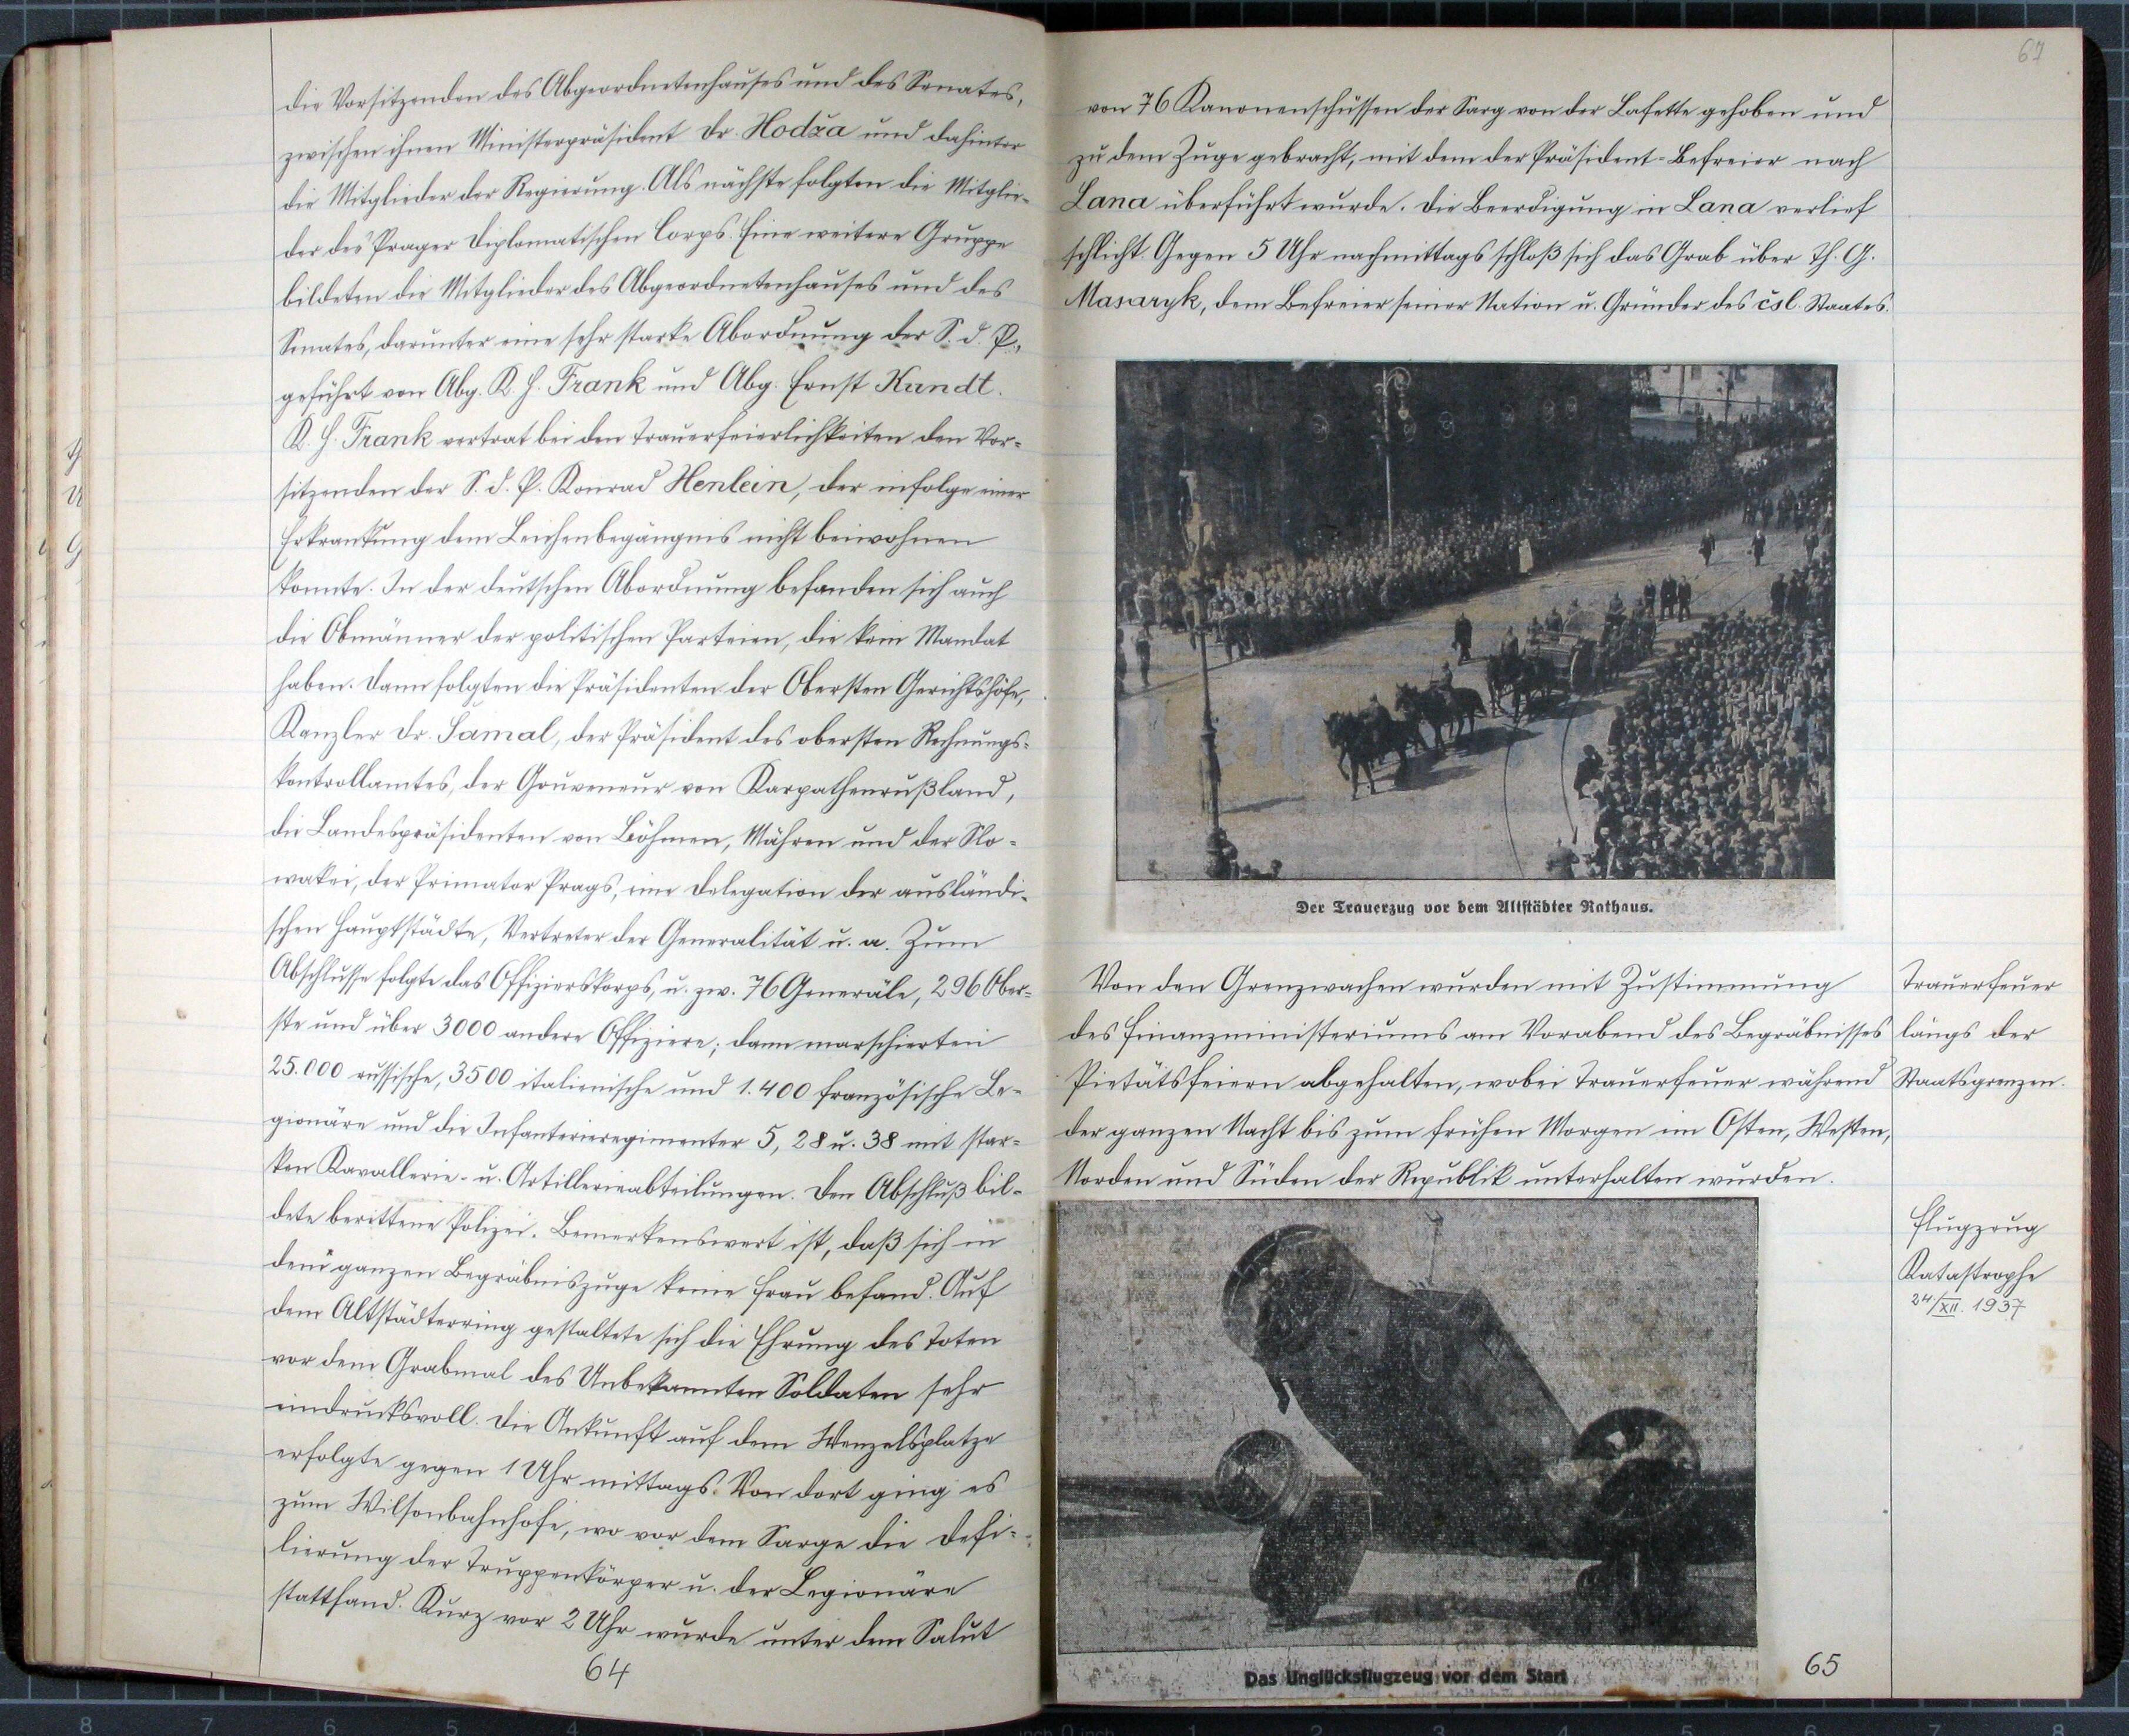 die Vorsitzenden des Abgeordnetenhauses und des Senates,
zwischen ihnen Ministerpräsident Dr. Hodža und dahinter
die Mitglieder der Regierung. Als nächste folgten die Mitglie-
der des Prager Diplomatischen Corps. Eine weitere Gruppe
bildeten die Mitglieder des Abgeordnetenhauses und des
Senates, darunter eine sehr starke Abordnung der S. d. P.,
geführt von Abg. K. H. Frank und Abg. Ernst Kundt.
K. H. Frank vertrat bei den Trauerfeierlichkeiten den Vor-
sitzenden der S. d. P. Konrad Henlein, der infolge einer
Erkrankung dem Leichenbegängnis nicht beiwohnen
konnte. In der deutschen Abordnung befanden sich auch
die Obmänner der politischen Parteien, die kein Mandat
haben. Dann folgten die Präsidenten der Obersten Gerichtshöfe,
Kanzler Dr. Šamal, der Präsident des obersten Rechnungs-
kontrollamtes, der Gouveneur von Karpathenrußland,
die Landespräsidenten von Böhmen, Mähren und der Slo-
wakei, der Primator Prags, eine Delegation der ausländi-
schen Hauptstädte, Vertreter der Generalität u. a. Zum
Abschlusse folgte das Offizierskorps, u. zw. 76 Generäle, 296 Ober-
ste und über 3000 andere Offiziere; dann marschierten
25.000 russische, 3500 italienische und 1.400 französische Le-
gionäre und die Infanterieregimenter 5, 28 u. 38 mit star-
ken Kavallerie- u. Artillerieabteilungen. Den Abschluß bil-
dete berittene Polizei. Bemerkenswert ist, daß sich in
dem ganzen Begräbniszuge keine Frau befand. Auf
dem Altstädterring gestaltete sich die Ehrung des Toten
vor dem Grabmal des Unbekannten Soldaten sehr
eindrucksvoll. Die Ankunft auf dem Wenzelsplatze
erfolgte gegen 1 Uhr mittags. Von dort ging es
zum Wilsonbahnhofe, wo vor dem Sarge die Defi-
lierung der Truppenkörper u. der Legionäre
stattfand. Kurz vor 2 Uhr wurde unter dem Salut
64
67
von 76 Kanonenschüssen der Sarg von der Lafette gehoben und
zu dem Zuge gebracht, mit dem der Präsident-Befreier nach
Lana überführt wurde. Die Beerdigung in Lana verlief
schlicht. Gegen 5 Uhr nachmittags schloß sich das Grab über Th. G.
Masaryk, dem Befreier seiner Nation u. Gründer des čsl. Staates.
Der Trauerzug vor dem Altstädter Rathaus.
Von den Grenzwachen wurden mit Zustimmung
des Finanzministeriums am Vorabend des Begräbnisses
Pietätsfeiern abgehalten, wobei Trauerfeuer während
der ganzen Nacht bis zum frühen Morgen im Osten, Westen,
Norden und Süden der Republik unterhalten wurden.
Trauerfeuer
längs der
Staatsgrenzen.
Flugzeug
Katastrophe
24./XII. 1937
Das Unglücksflugzeug vor dem Start
65